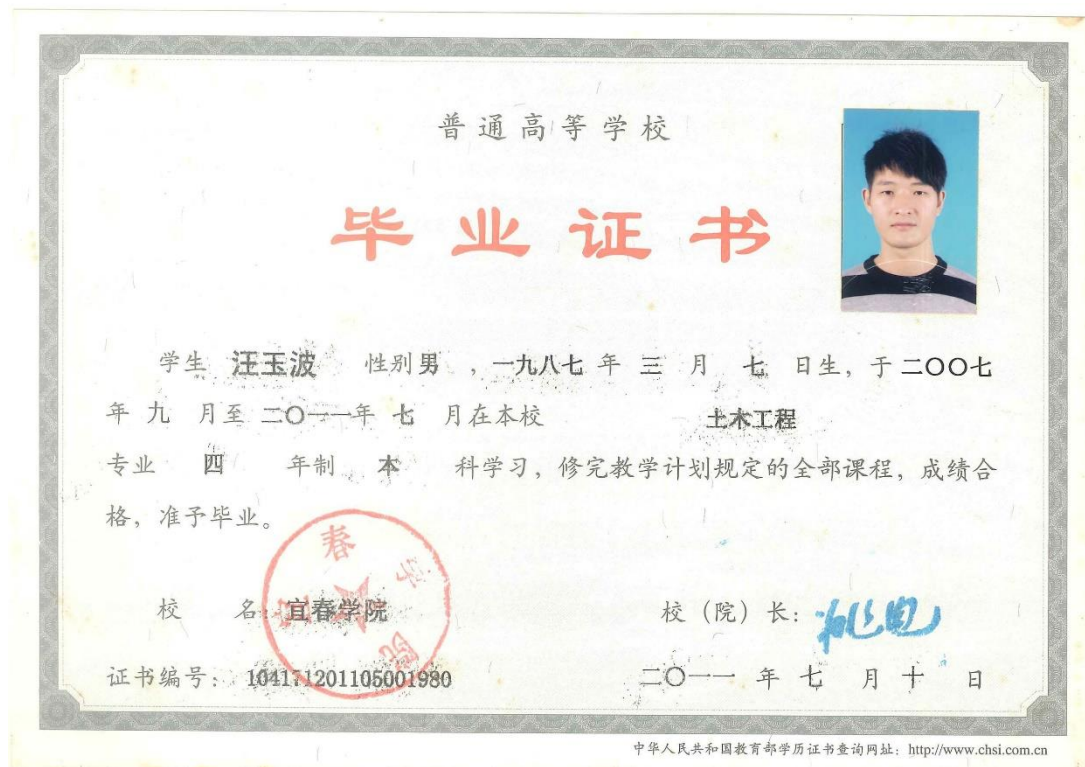 普通高等学校
毕业证书
学生 汪玉波 性别 男 ，一九八七 年 三 月 七 日生，于 二〇〇七
年 九 月至 二〇一一年 七 月在本校 土木工程
专业 四 年制 本 科学习，修完教学计划规定的全部课程，成绩合
格，准予毕业。
校 名：宜春学院 校（院）长：
证书编号： 104171201105001980 二〇一一 年 七 月 十 日
春学院
中华人民共和国教育部学历证书查询网址：http://www.chsi.com.cn